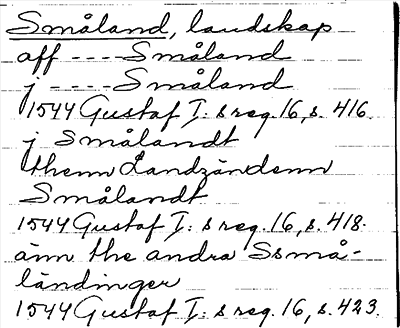 Småland, landskap
aff ---- Småland
j ---- Småland
1544 Gustaf I:s reg. 16, s. 416.
j Smålandt
thenn Landzändenn
Smålandt
1544 Gustaf I:s reg. 16, s. 418.
änn the andra Ssmå-
ländinger
1544 Gustaf I:s reg. 16, s. 423.